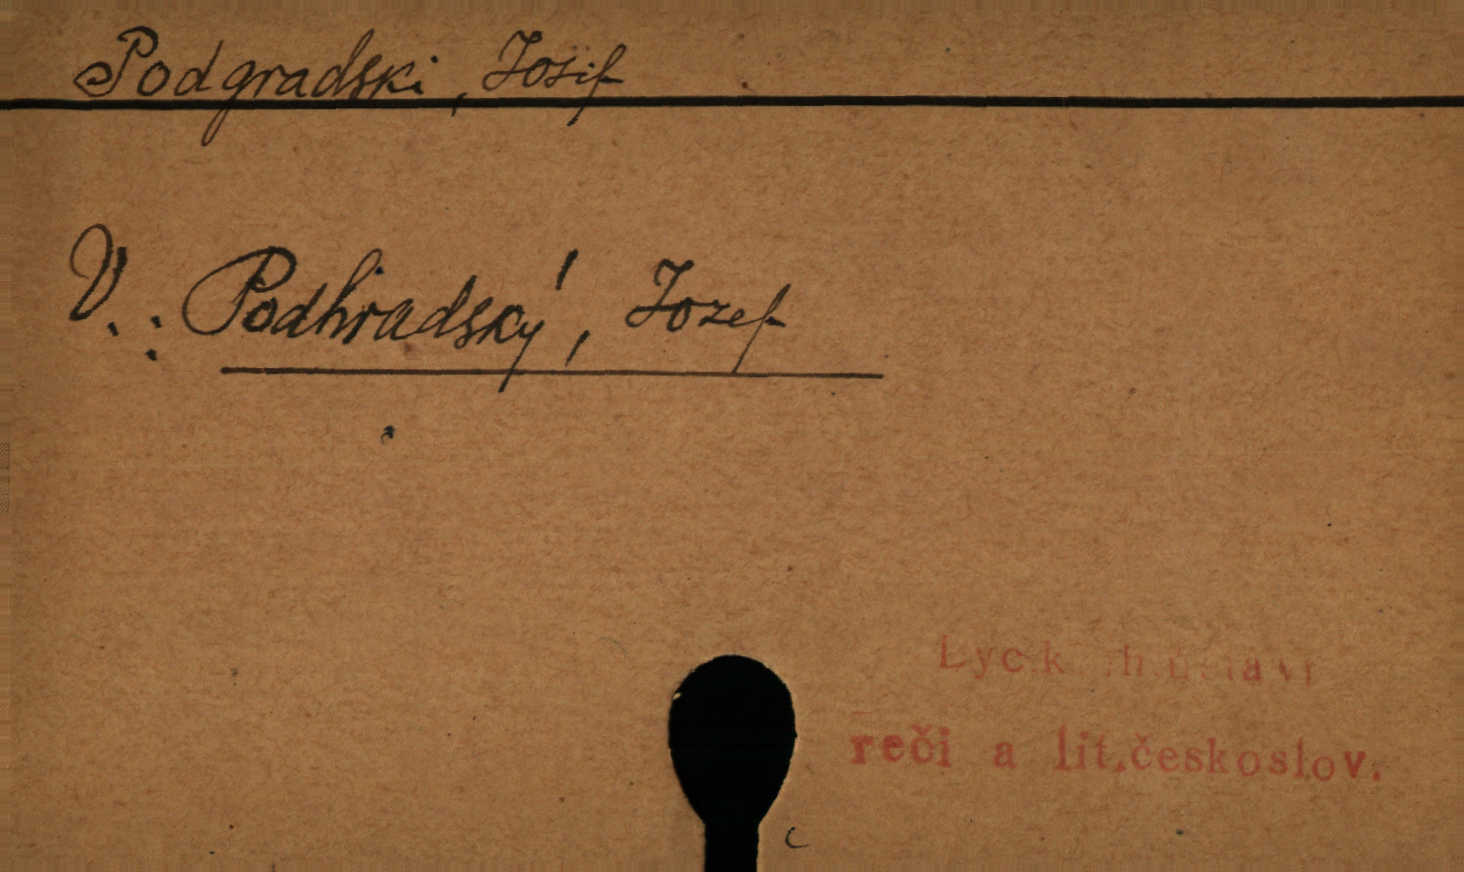 Podgradski, Josif
V.: Podhradský, Jozef
reči a lit. českoslov.